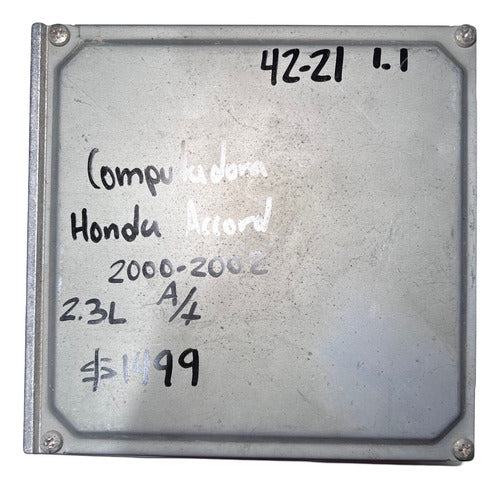 42-21 1.1
Computadora
Honda Accord
2000-2002
2.3L A/t
$1499